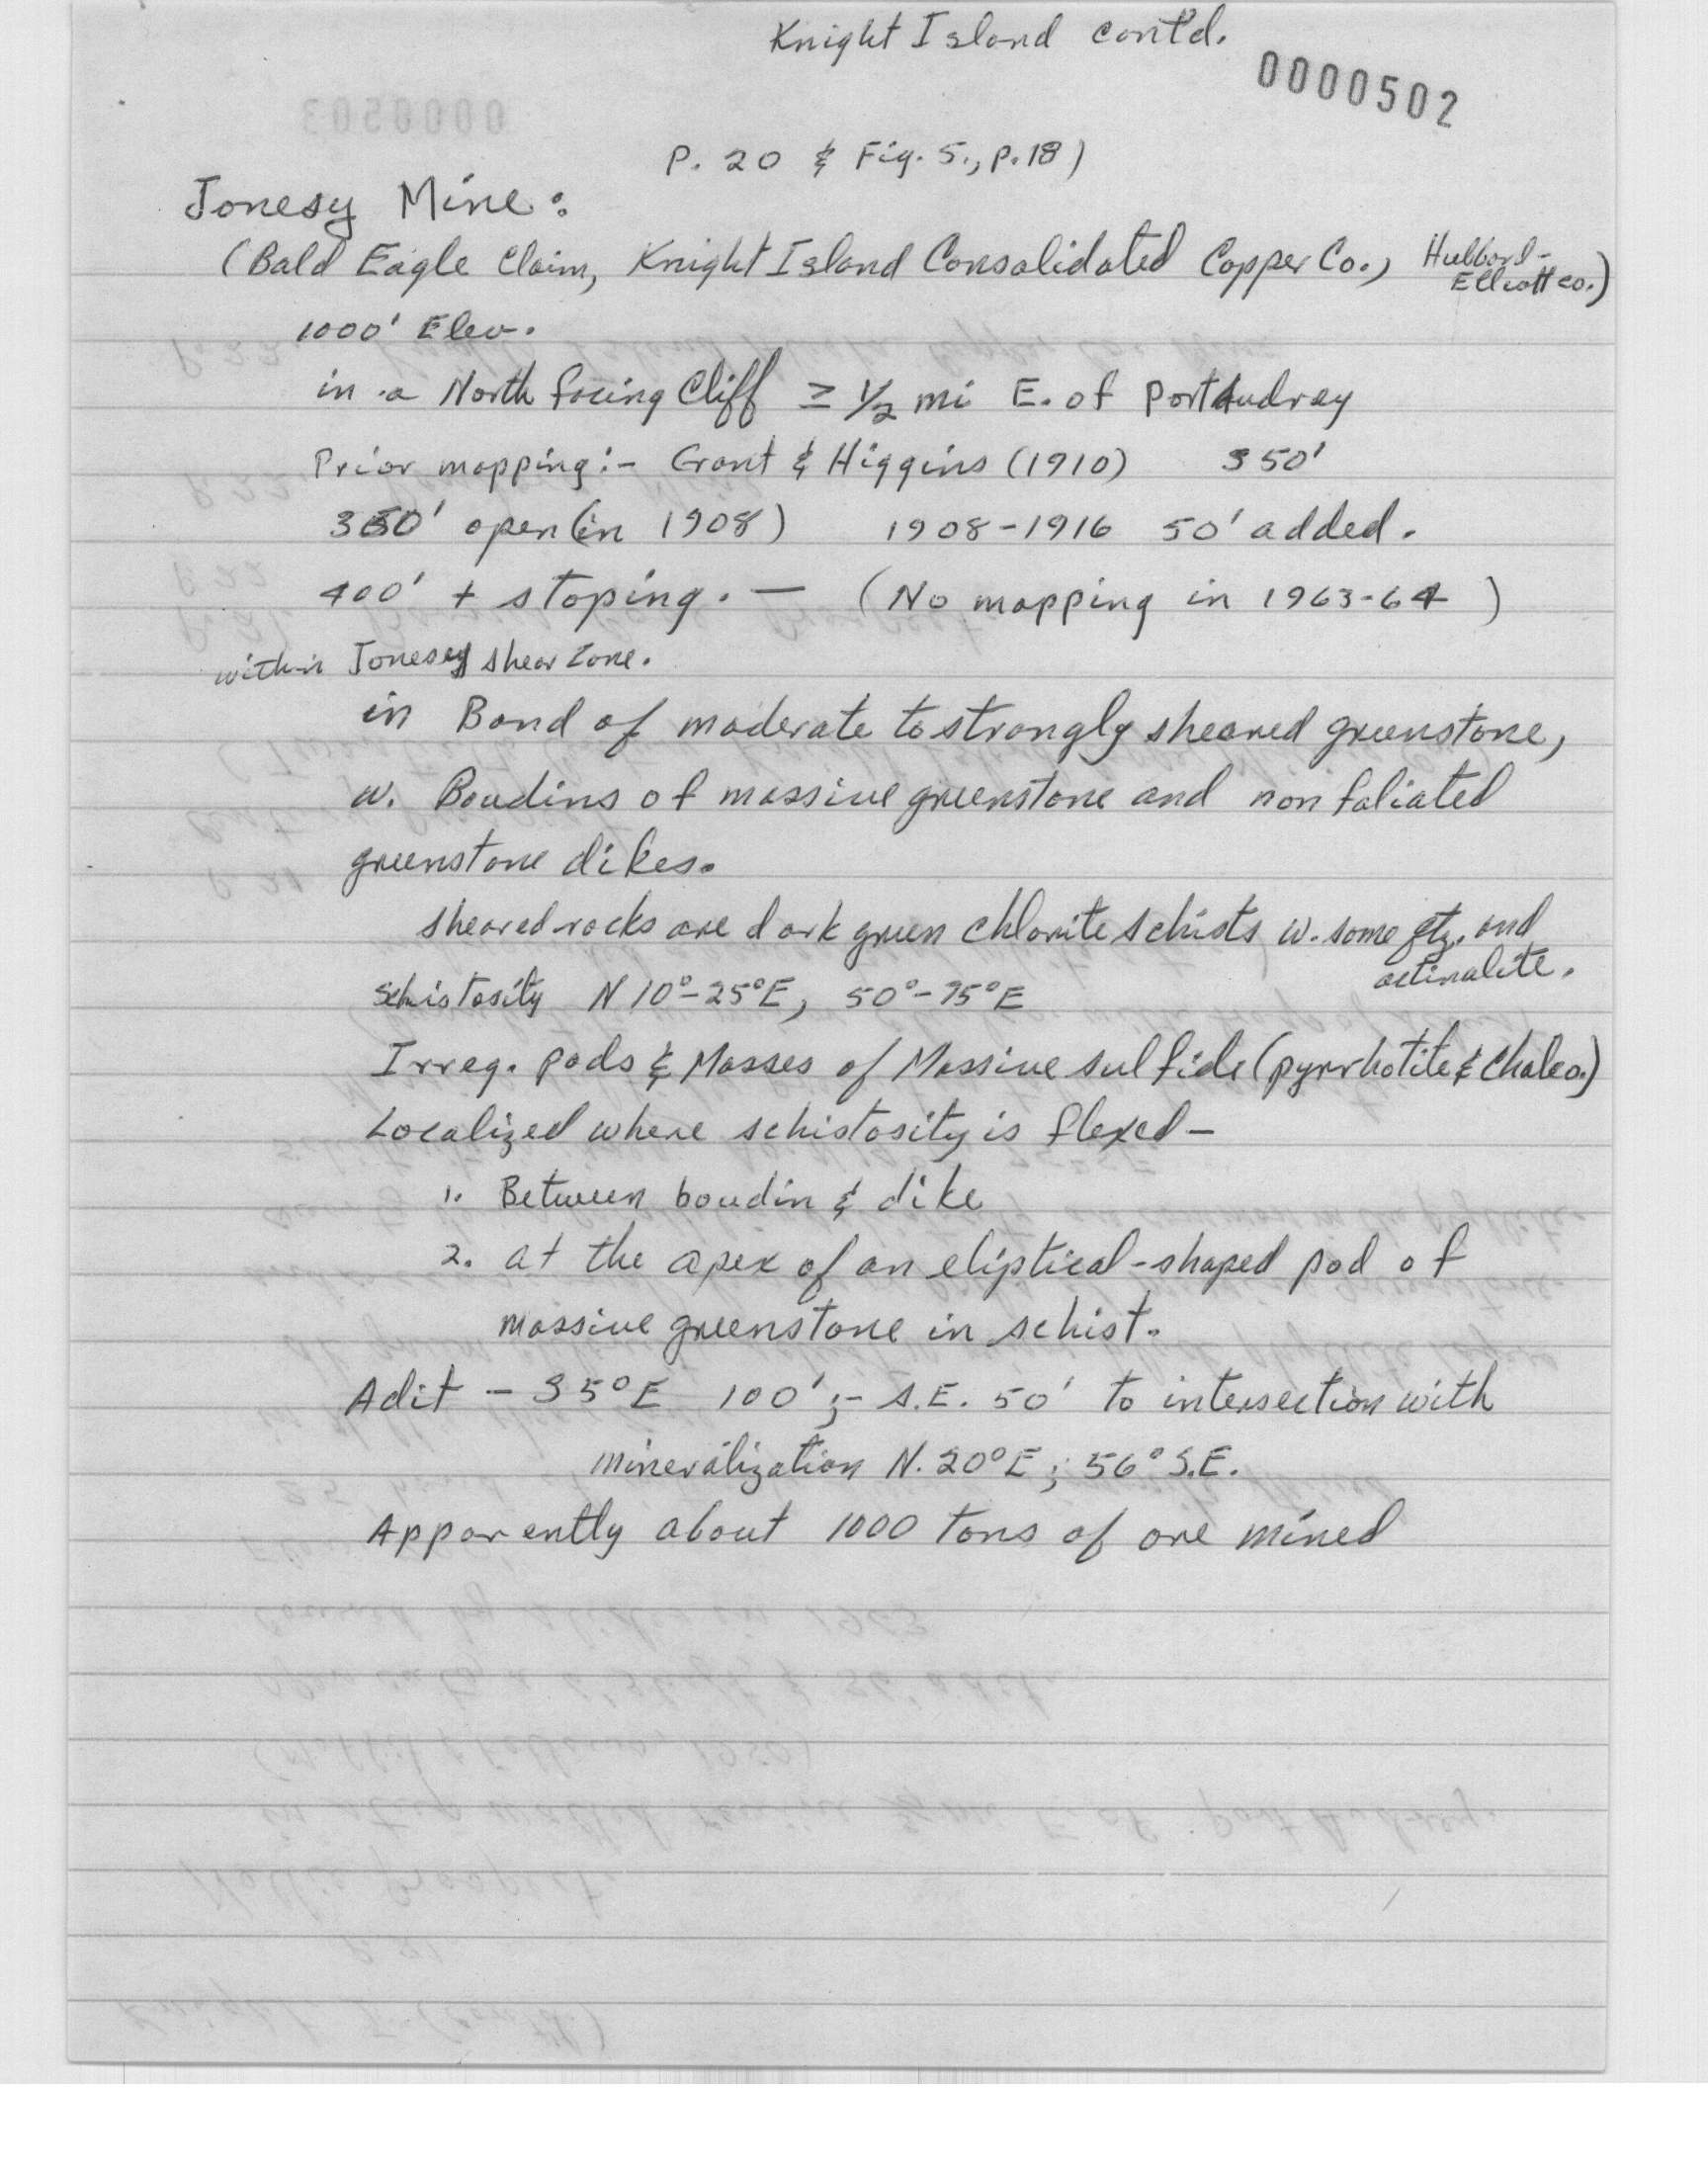 Knight Island cont'd.
0000502
P. 20 & Fig. 5., p. 18)
Jonesy Mine:
(Bald Eagle Claim, Knight Island Consolidated Copper Co., Hubbard-
Elliott co.)
1000' Elev.
in a North facing Cliff ≥ 1/2 mi E. of Port Audrey
Prior mapping:- Grant & Higgins (1910) 350'
350' open (in 1908) 1908-1916 50' added.
400' + stoping. — (No mapping in 1963-64)
within Jonesy shear zone.
in Band of moderate to strongly sheared greenstone,
w. Boudins of massive greenstone and non foliated
greenstone dikes.
sheared rocks are dark green chlorite schists w. some qtz. and
actinalite.
schistosity N 10°-25°E, 50°-75°E
Irreg. pods & Masses of Massive sulfide (pyrrhotite & Chalco.)
Localized where schistosity is flexed-
1. Between boudin & dike
2. at the apex of an eliptical-shaped pod of
massive greenstone in schist.
Adit - S5°E 100';- S.E. 50' to intersection with
mineralization N. 20°E; 56° S.E.
Apparently about 1000 tons of ore mined